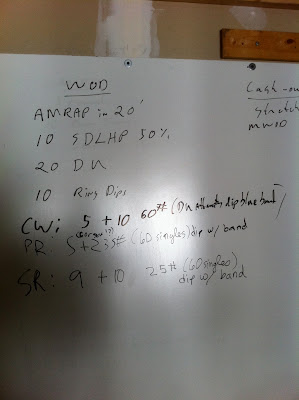 WOD
Cash-ou
stretch
MWOD
AMRAP in 20'
10 SDLHP 50%
20 DU
10 Ring Dips
CW: 5 + 10 60# (DU attempts dip blue band)
PR: 5 + 2 35# (60 singles) dip w/ band
SR: 9 + 10 25# (60 singles)
dip w/ band